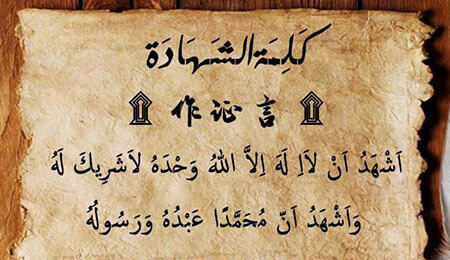 كَلِمَةُ الشَّهَادَة
作证言
اَشْهَدُ اَنْ لاَاِ لَهَ اِلاَّ اللهُ وَحْدَهُ لاَشَرِيكَ لَهُ
وَاَشْهَدُ اَنّ مُحَمَّدًا عَبْدُهُ وَرَسُولُهُ